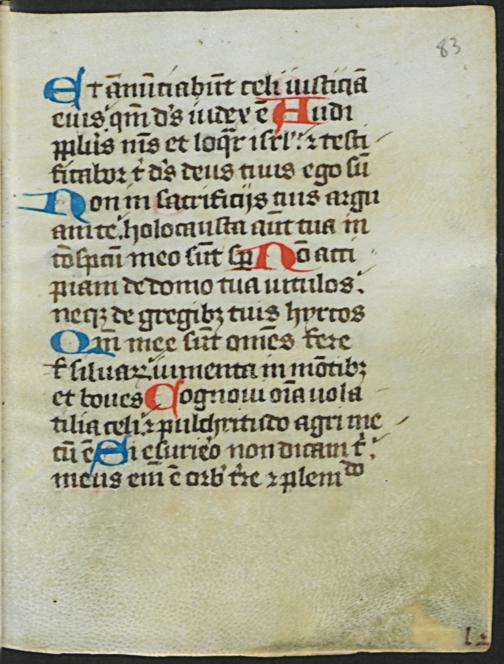 83
Et ānūciabūt celi iusticiā
eius qm̄ ds̄ iudex ē Audi
pplus ms̄ et loqr̄ isrl̄ ⁊ testi
ficabor t̄ ds̄ deus tuus ego sū
Non in sacrificijs tuis argu
am te holocausta aūt tua in
cōspcū meo sūt sp̄ Nō acci
piam de domo tua uitulos
neqꝫ de gregibꝫ tuis hyrcos
Qm̄ mee sūt om̄es fere
siluaꝝ iumenta in mōtibꝫ
et boues Cognoui oīa uola
tilia celi ⁊ pulchritudo agri me
cū ē Si esuriero non dicam t̄
meus em̄ ē orb' tr̄e ⁊ plenido